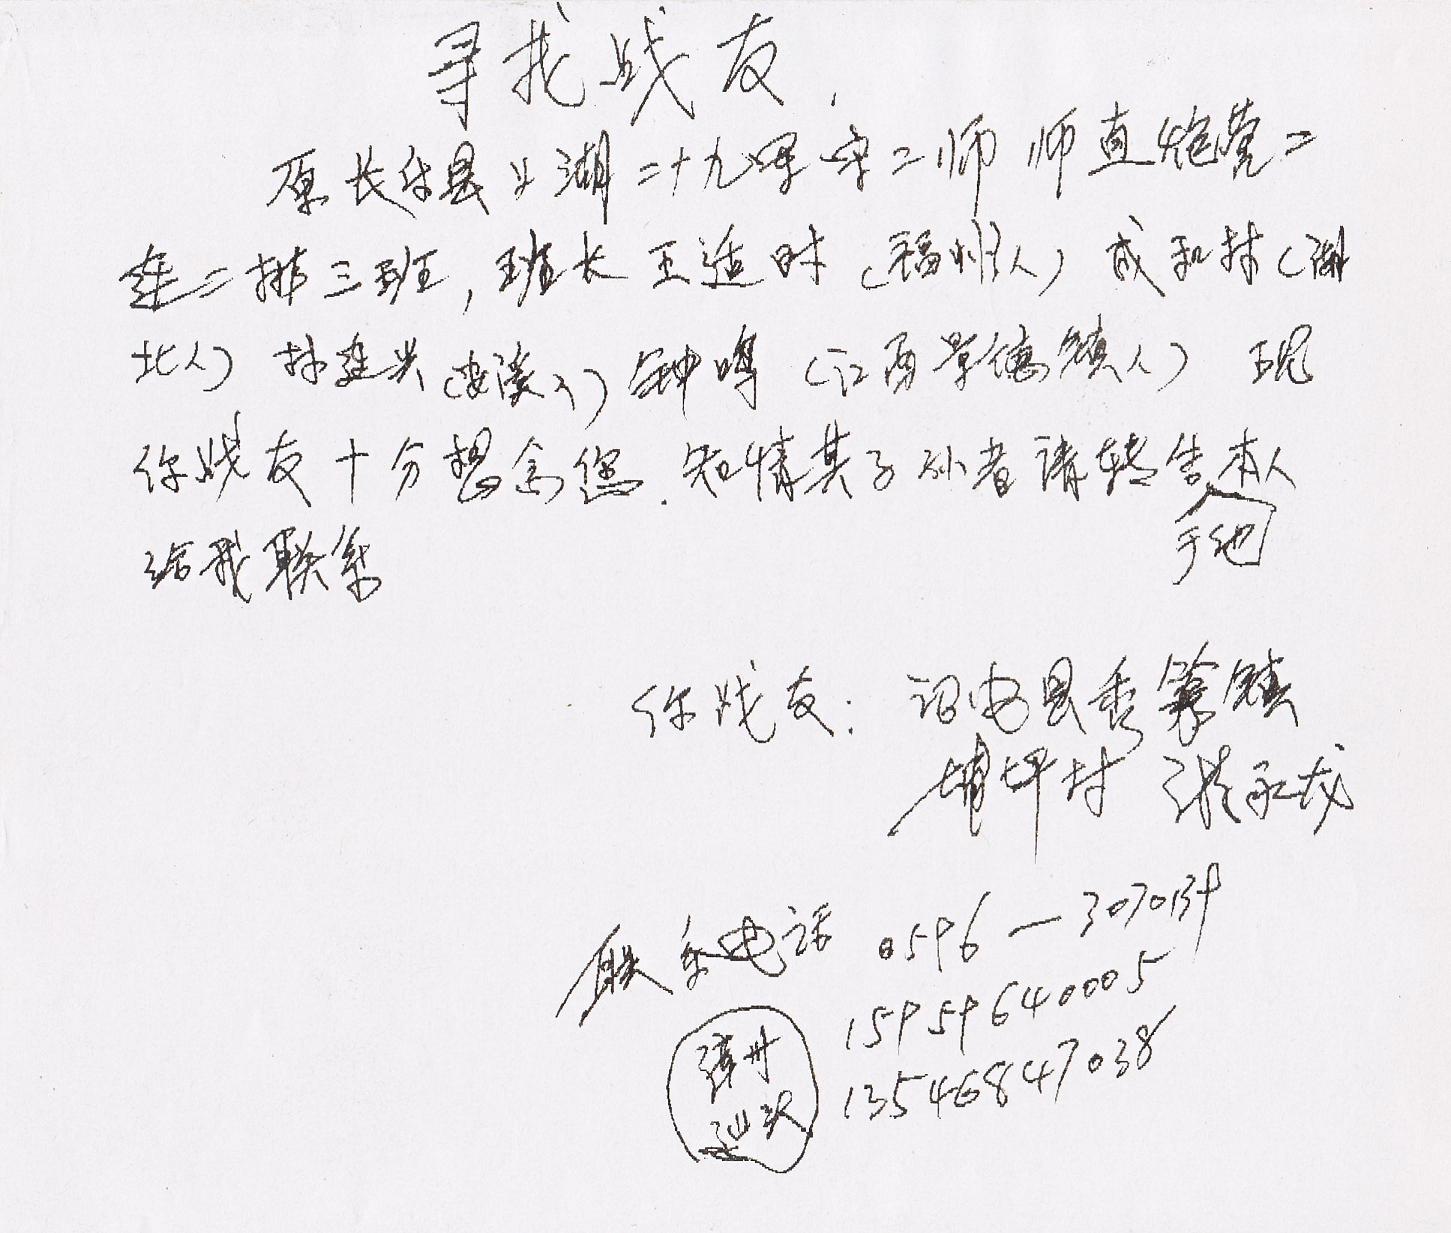 寻找战友
原长乐县上湖二十九军守二师 师直炮营二
连二排三班，班长王适时（福州人）成和林（湖
北人）林连兴（安溪人）钟鸣（江西景德镇人）现
你战友十分想念您.知情其子孙者请转告本人
于他
给我联系
你战友：诏安县秀篆镇
埔坪村 张永龙
联系电话 0596—3070139
15959640005
漳州 13546847038
汕头